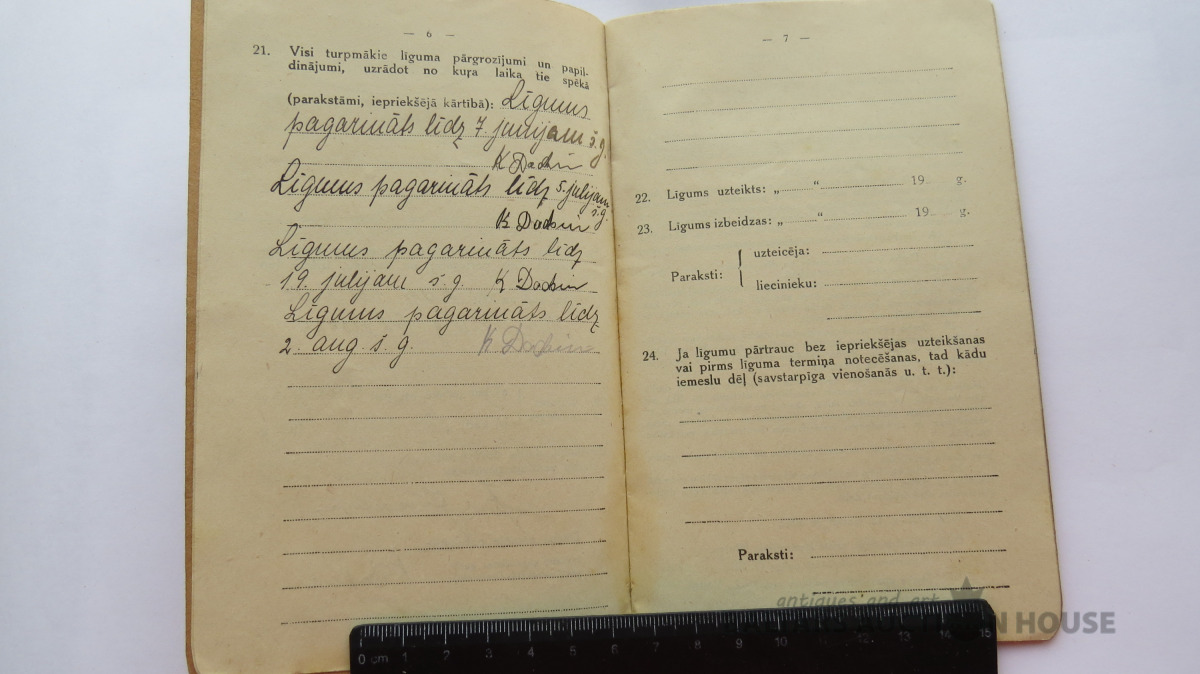 — 6 —
21. Visi turpmākie līguma pārgrozījumi un papil-
dinājumi, uzrādot no kuŗa laika tie spēkā
(parakstāmi, iepriekšējā kārtībā): Līgums
pagarināts līdz 7. junijam š.g.
K Dadin
Līgums pagarināts līdz 5. julijam
š.g.
K Dadin
Līgums pagarināts līdz
19. julijam š.g. K Dadin
Līgums pagarināts līdz
2. aug. š.g. K Dadin
— 7 —
22. Līgums uzteikts: „ “ 19 g.
23. Līgums izbeidzas: „ “ 19 g.
Paraksti: { uzteicēja:
liecinieku:
24. Ja līgumu pārtrauc bez iepriekšējas uzteikšanas
vai pirms līguma termiņa notecēšanas, tad kādu
iemeslu dēļ (savstarpīga vienošanās u. t. t.):
Paraksti:
antiques and art
AUCTION HOUSE
0 cm 1 2 3 4 5 6 7 8 9 10 11 12 13 14 15